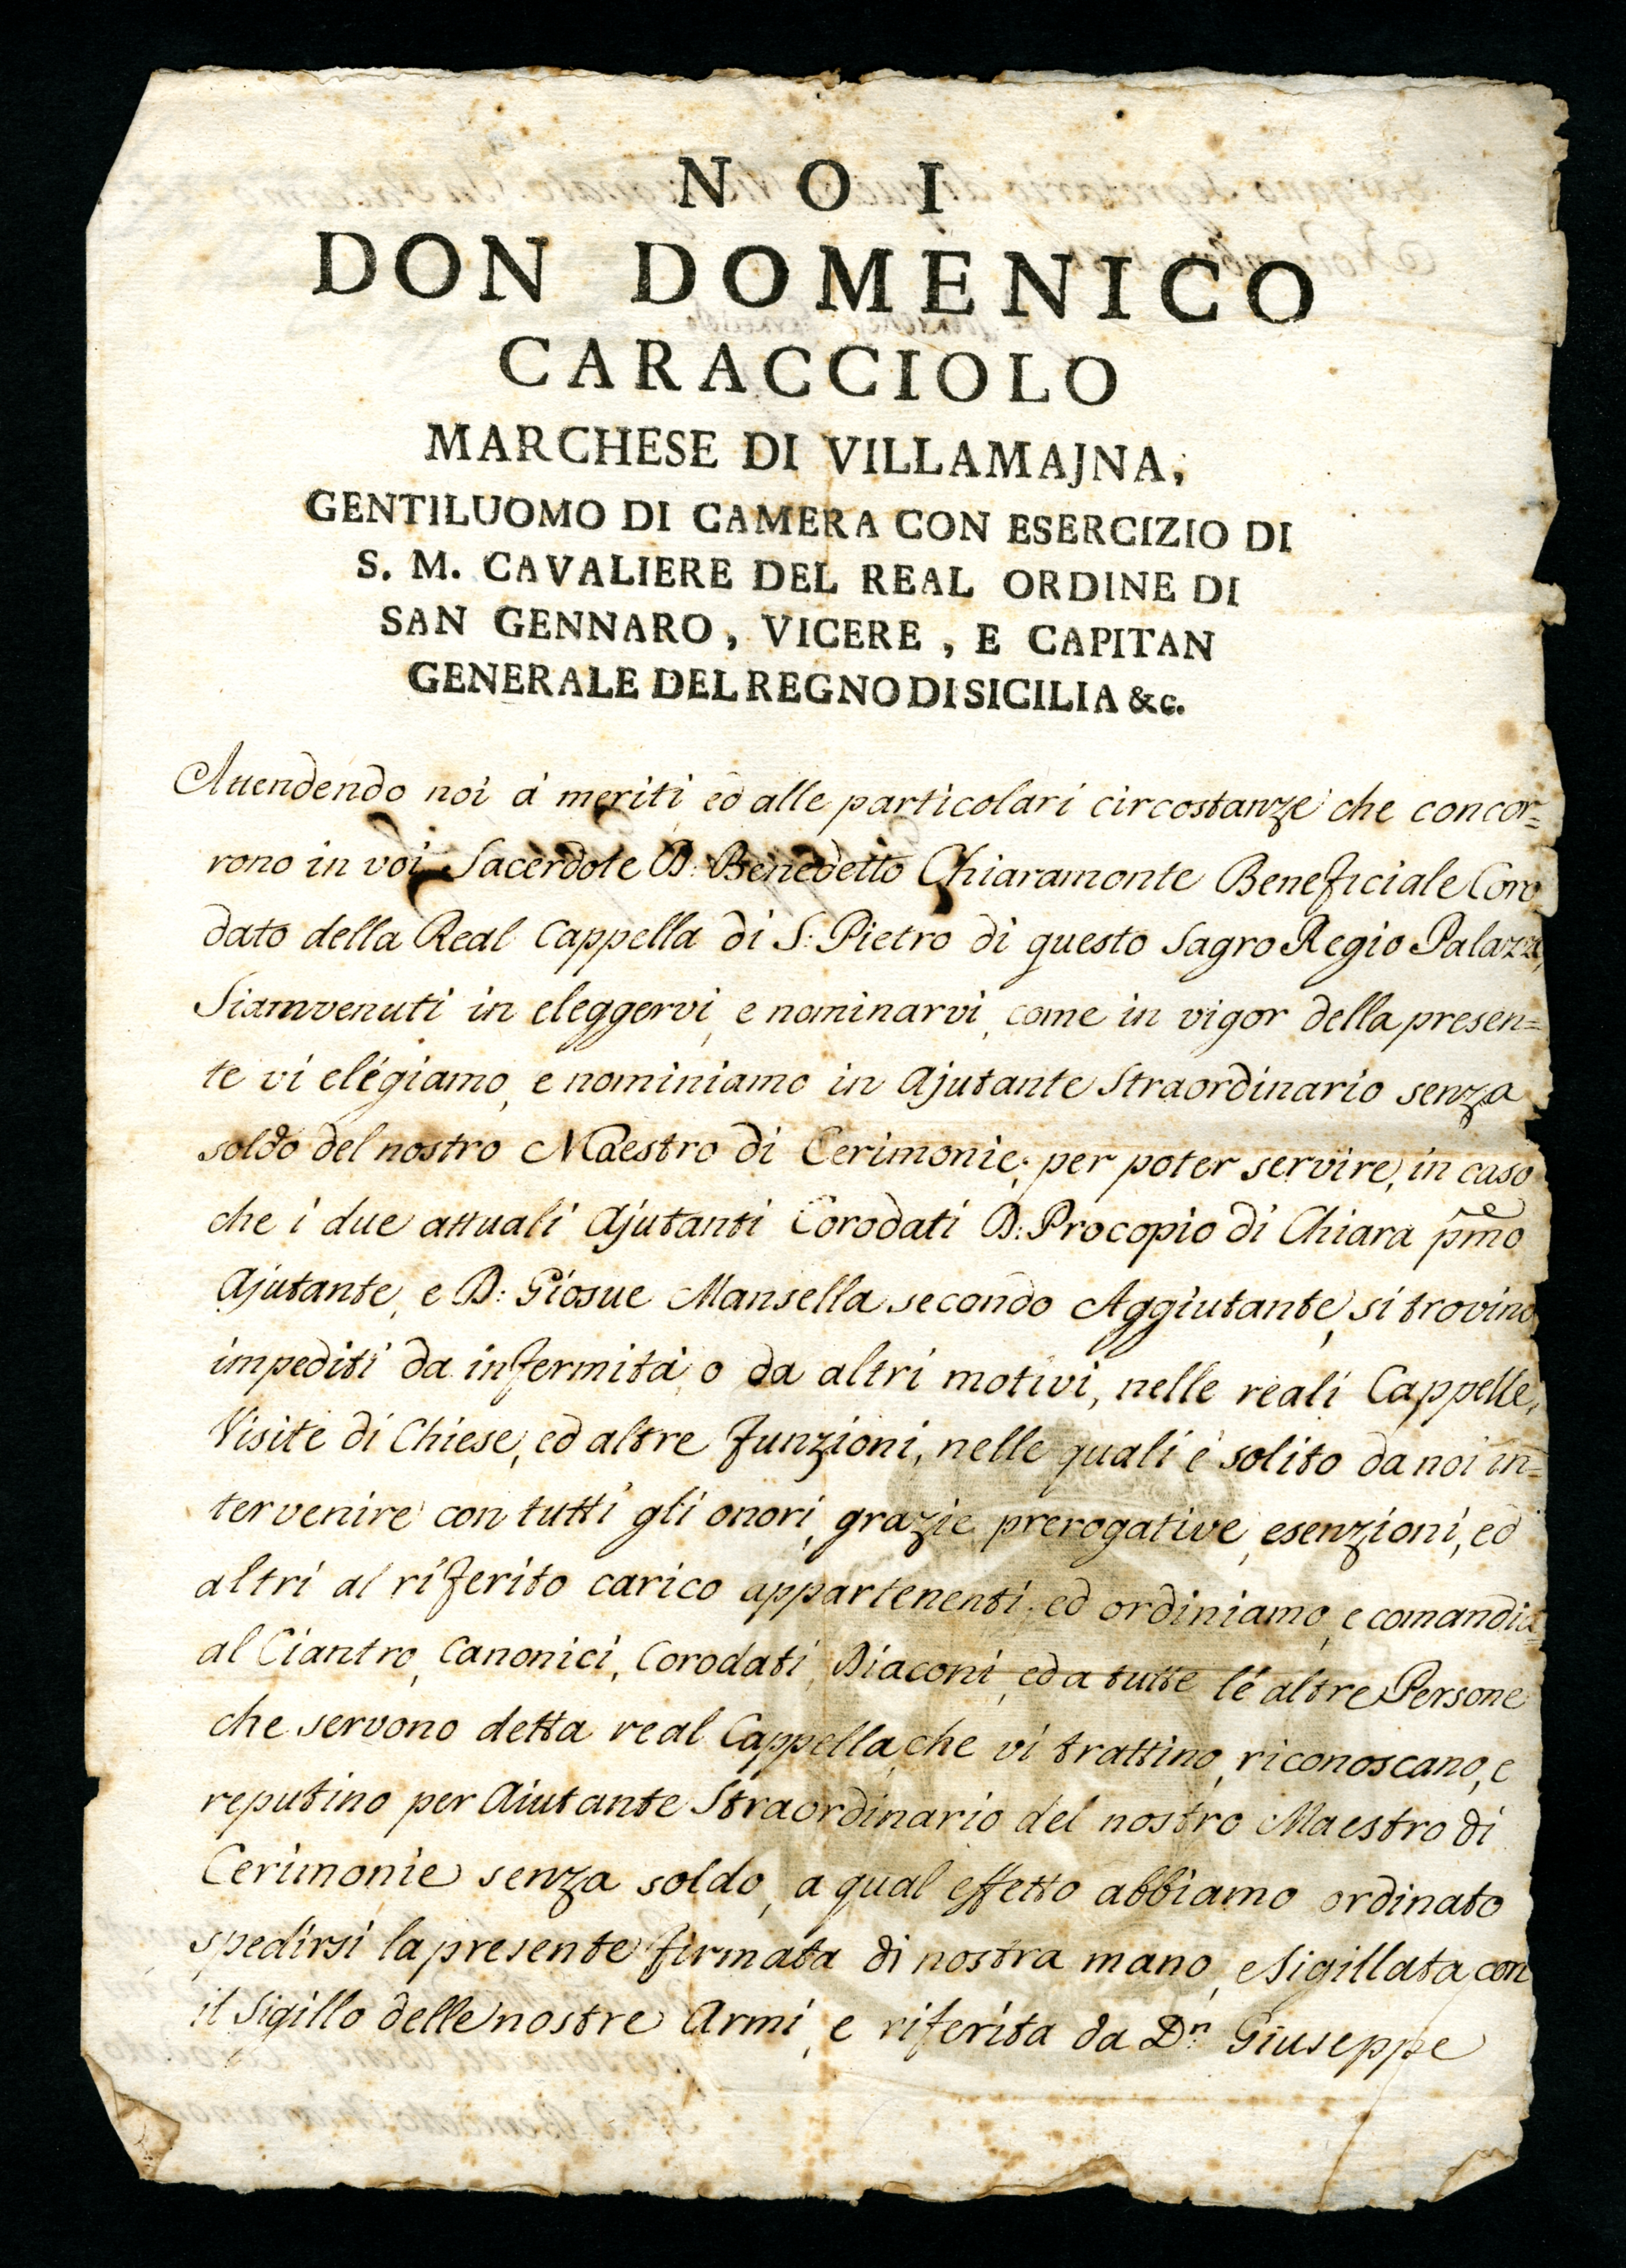 NOI
DON DOMENICO
CARACCIOLO
MARCHESE DI VILLAMAJNA,
GENTILUOMO DI CAMERA CON ESERCIZIO DI
S. M. CAVALIERE DEL REAL ORDINE DI
SAN GENNARO, VICERE, E CAPITAN
GENERALE DEL REGNO DI SICILIA &c.
Attendendo noi à meriti, ed alle particolari circostanze che concor=
rono in voi Sacerdote D: Benedetto Chiaramonte Beneficiale Coro
dato della Real Cappella di S: Pietro di questo Sagro Regio Palazzo,
Siamvenuti in eleggervi, e nominarvi, come in vigor della presen=
te vi elégiamo, e nominiamo in Ajutante Straordinario senza
soldo del nostro Maestro di Cerimonie; per poter servire, in caso
che i due attuali Ajutanti Corodati D: Procopio di Chiara pmo
Ajutante, e D: Giosue Mansella secondo Aggiutante, si trovino
impediti da infermità, o da altri motivi, nelle reali Cappelle,
Visite di Chiese, ed altre funzioni, nelle quali é solito da noi in=
tervenire con tutti gli onori, grazie prerogative, esenzioni, ed
altri al riferito carico appartenenti; ed ordiniamo, e comandia=
al Ciantro, Canonici, Corodati, Diaconi, ed a tutte lé altre Persone
che servono detta real Cappella, che vi trattino, riconoscano, e
reputino per Aiutante Straordinario del nostro Maestro di
Cerimonie senza soldo, a qual effetto abbiamo ordinato
spedirsi la presente firmata di nostra mano, e Sigillata con
il Sigillo delle nostre Armi, e riferita da Dn Giuseppe